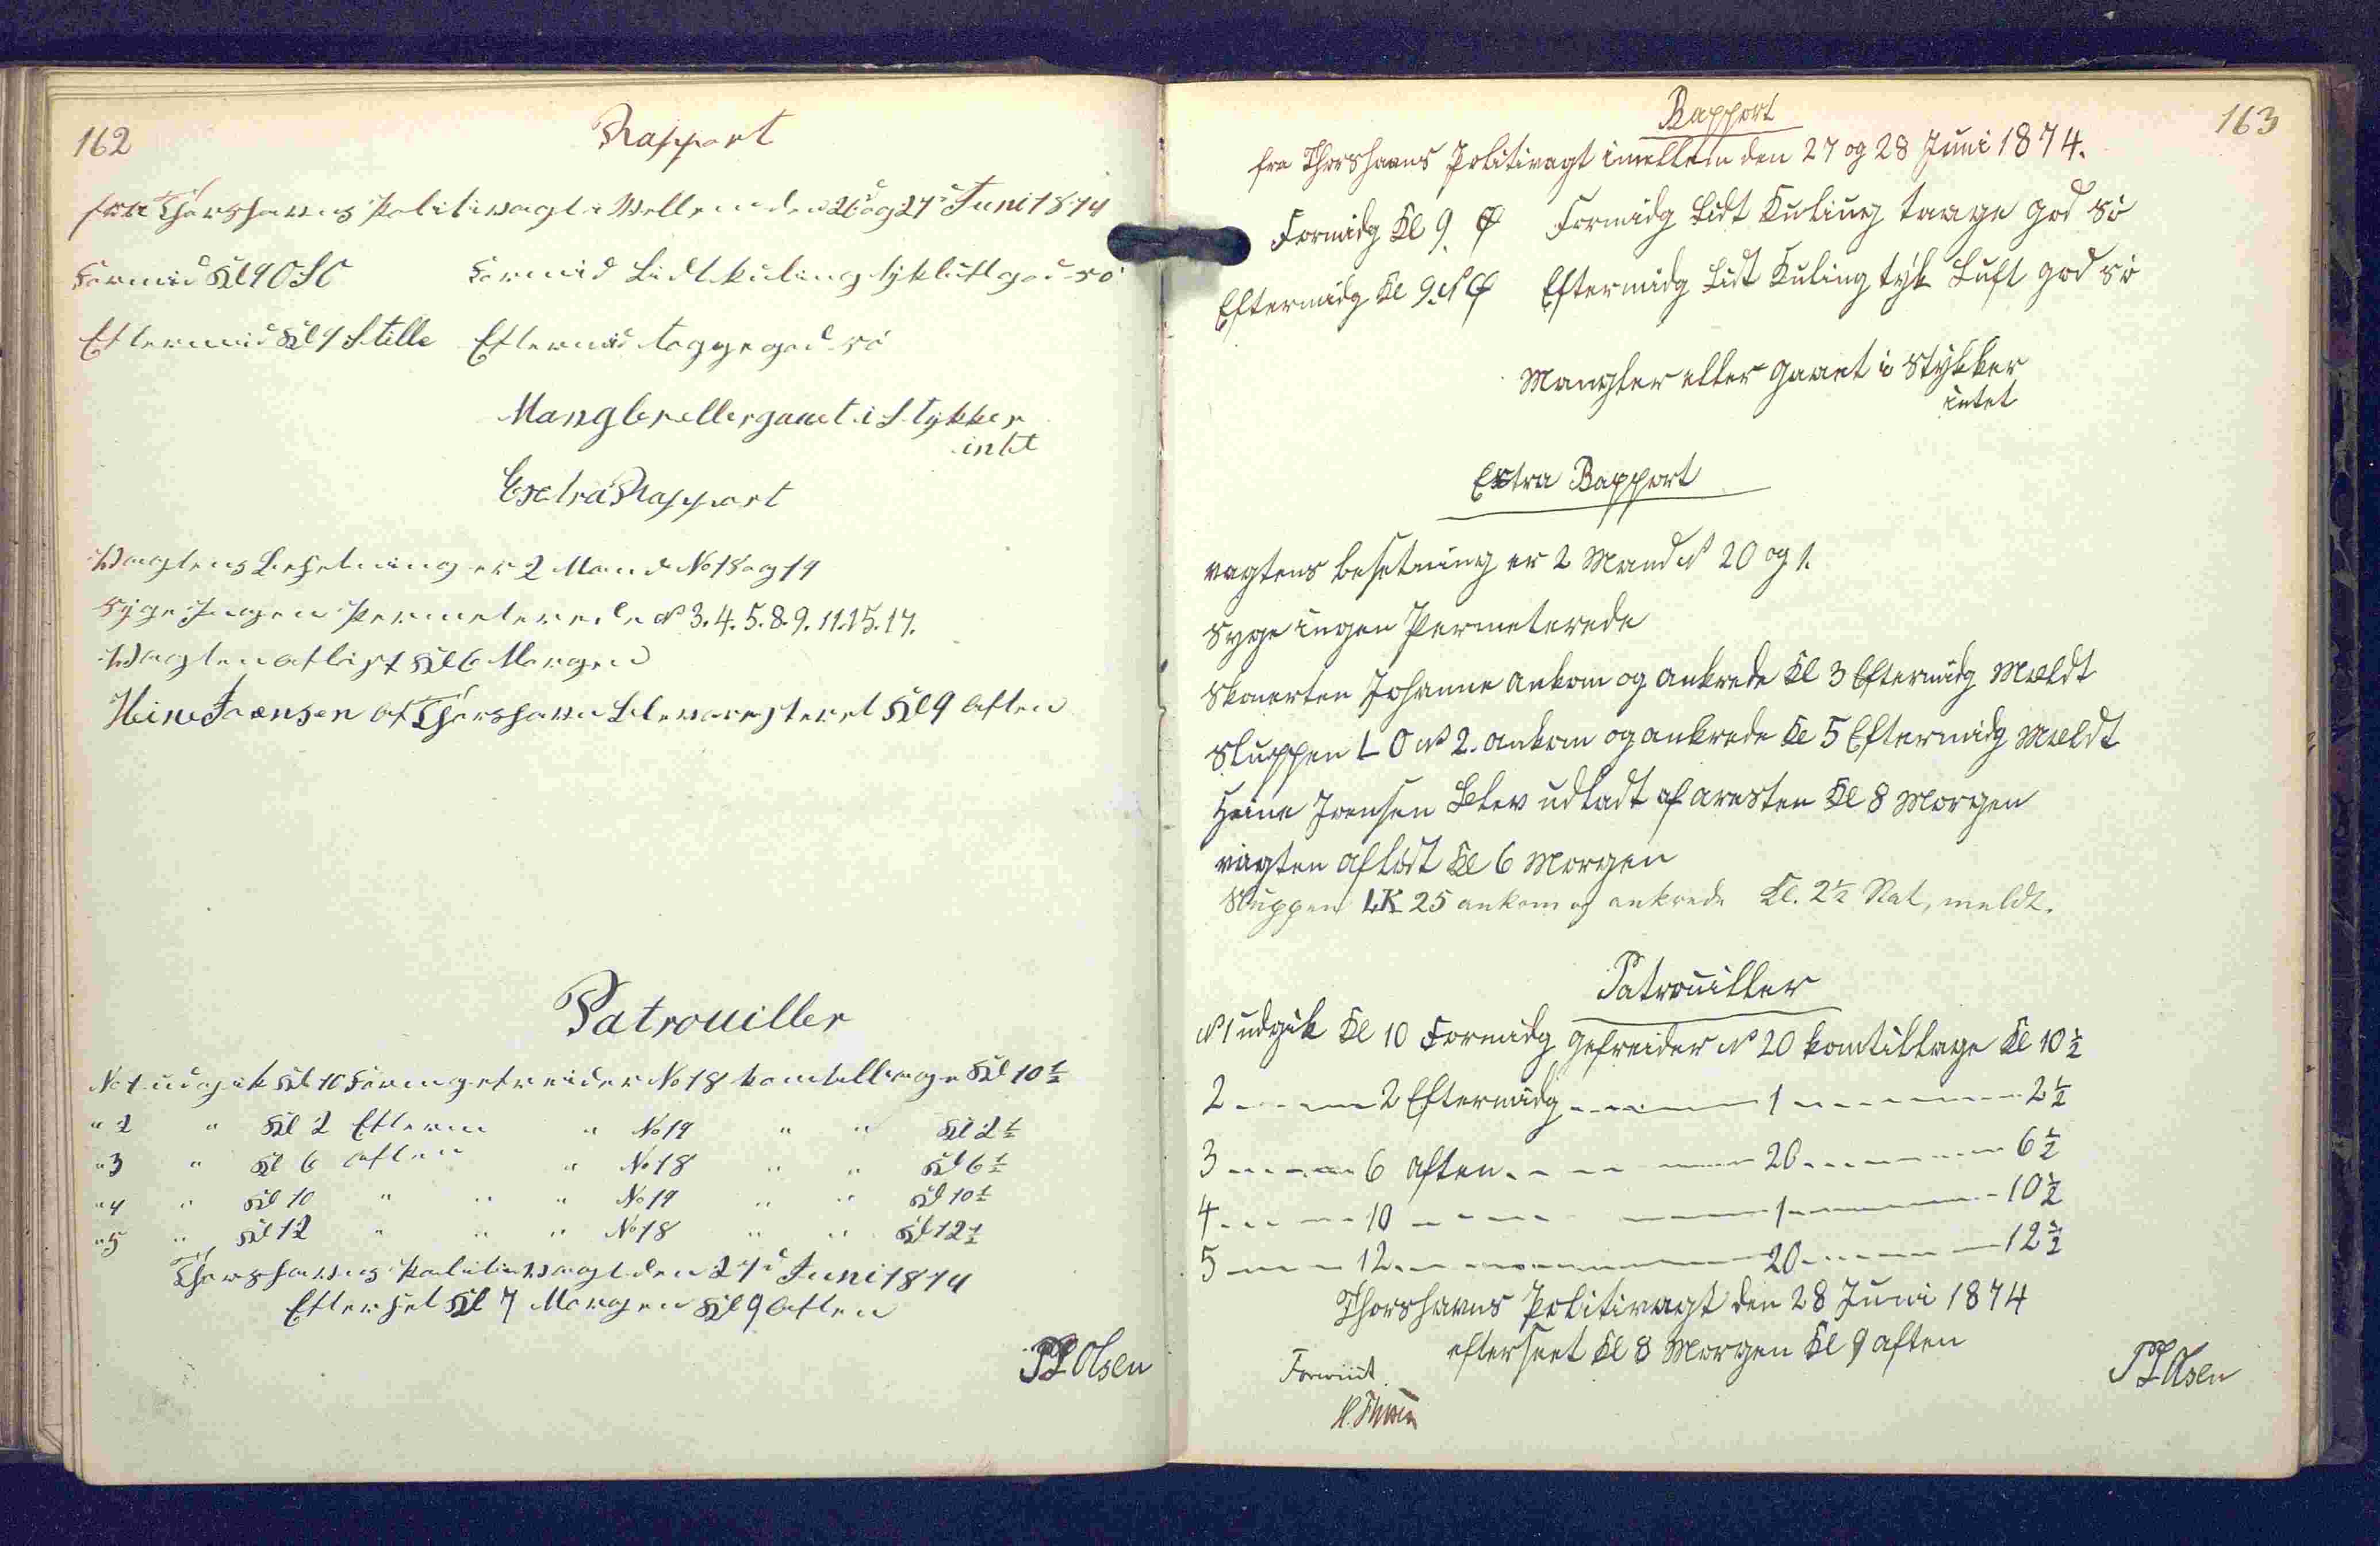 162
Rapport
fra Thorshavns Politivagt i Mellem den 26d og 27d Juni 1874
Formid Kl 9 OSO Formid Lidt kuling tyk luft god sö
Eftermid Kl 9 Stille Eftermid tagge god sö
Mangler eller gaaet i Stykker
intet
Extra Rapport
Vagtens Besetning er 2 Mand No 18 og 19
Syge Ingen Permeterede No 3. 4. 5. 8. 9. 11. 15. 17.
Vagten aflöst Kl 6 Morgen
Heine Joensen af Thorshavn blev aresteret Kl 9 Aften
Patrouiller
No 1 udgik Kl 10 Form gefreider No 18 kom tillbage Kl 10 1/2
" 2 " Kl 2 Efterm " No 19 " " Kl 2 1/2
" 3 " Kl 6 Aften " No 18 " " Kl 6 1/2
" 4 " Kl 10 " " " No 19 " " Kl 10 1/2
" 5 " Kl 12 " " " No 18 " " Kl 12 1/2
Thorshavns Politivagt den 27d Juni 1874
Efterset Kl 7 Morgen Kl 9 Aften
PL Olsen
163
Rapport
fra Thorshavns Politivagt imellem den 27 og 28 Juni 1874.
Formidg Kl 9. Ø Formidg Lidt Kuling taage god sö
Eftermidg Kl 9. NØ Eftermidg Lidt Kuling tyk Luft god sö
Mangler eller gaaet i Stykker
intet
Extra Rapport
vagtens besetning er 2 Mand No 20 og 1.
Syge ingen Permeterede
Skonerten Johanne ankom og ankrede Kl 3 Eftermidg Mældt
Sluppen L O No 2. ankom og ankrede Kl 5 Eftermidg Mældt
Heine Joensen Blev udladt af aresten Kl 8 Morgen
vagten aflöst Kl 6 Morgen
Sluppen LK 25 ankom og ankrede Kl. 2 1/2 Nat, meldt.
Patrouiller
No 1 udgik Kl 10 Formidg gefreider No 20 kom tillage Kl 10 1/2
2 - - - 2 Eftermidg - - - 1 - - - 2 1/2
3 - - - 6 aften - - - 20 - - - 6 1/2
4 - - - 10 - - - 1 - - - 10 1/2
5 - - - 12 - - - 20 - - - 12 1/2
Thorshavns Politivagt den 28 Juni 1874
efterseet Kl 8 Morgen Kl 9 aften
PL Olsen